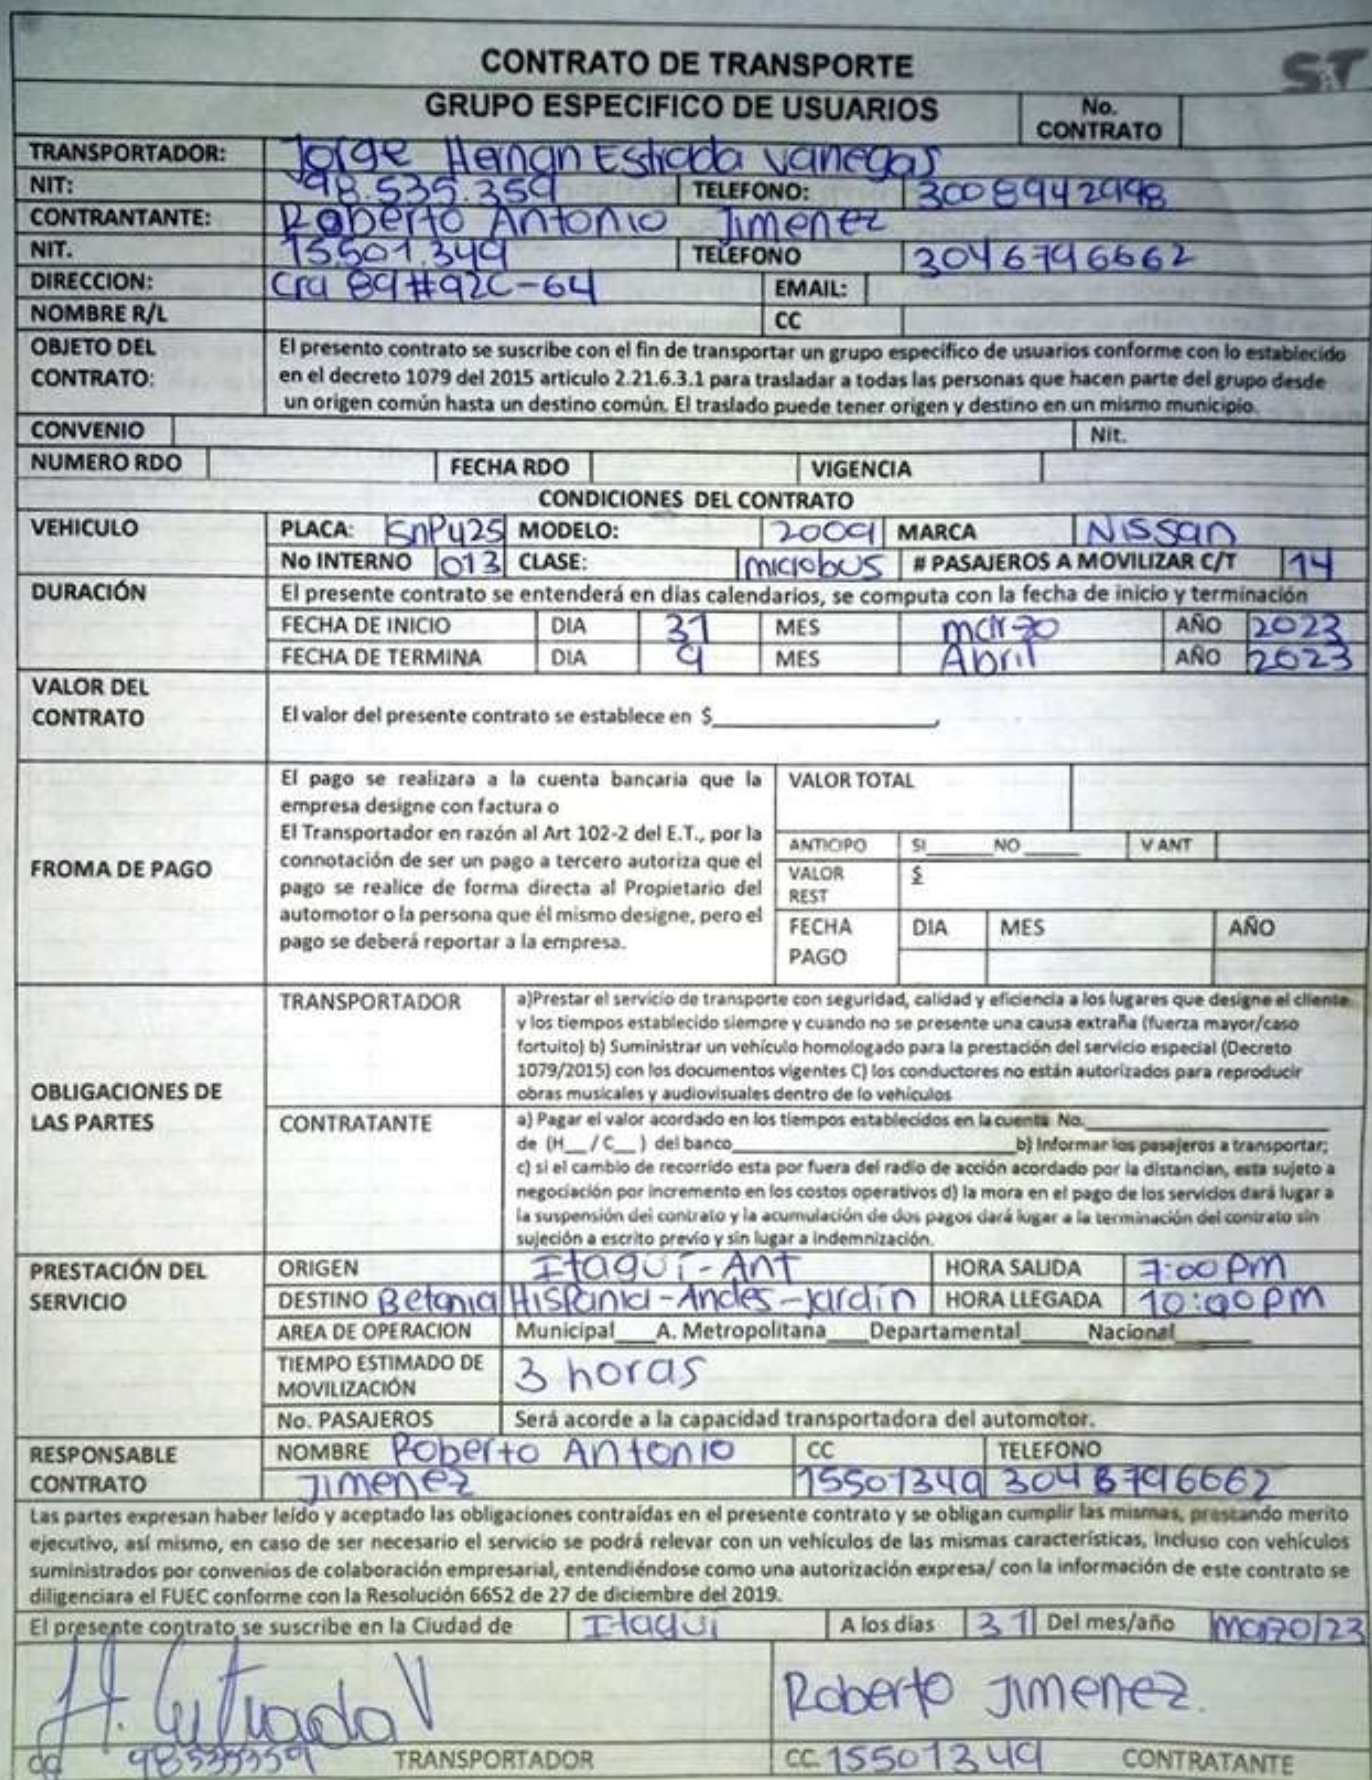 CONTRATO DE TRANSPORTE
ST
GRUPO ESPECIFICO DE USUARIOS No. CONTRATO
TRANSPORTADOR: Jorge Hernan Estrada Vanegas
NIT: 98.535.359 TELEFONO: 3008942998
CONTRANTANTE: Roberto Antonio Jimenez
NIT. 15501.349 TELEFONO 3046796662
DIRECCION: Cra 89#92C-64 EMAIL:
NOMBRE R/L CC
OBJETO DEL CONTRATO: El presento contrato se suscribe con el fin de transportar un grupo especifico de usuarios conforme con lo establecido
en el decreto 1079 del 2015 articulo 2.21.6.3.1 para trasladar a todas las personas que hacen parte del grupo desde
un origen común hasta un destino común. El traslado puede tener origen y destino en un mismo municipio.
CONVENIO Nit.
NUMERO RDO FECHA RDO VIGENCIA
CONDICIONES DEL CONTRATO
VEHICULO PLACA: SnP425 MODELO: 2009 MARCA NISSan
No INTERNO 013 CLASE: microbus # PASAJEROS A MOVILIZAR C/T 14
DURACIÓN El presente contrato se entenderá en días calendarios, se computa con la fecha de inicio y terminación
FECHA DE INICIO DIA 31 MES marzo AÑO 2023
FECHA DE TERMINA DIA 9 MES Abril AÑO 2023
VALOR DEL CONTRATO El valor del presente contrato se establece en $
FROMA DE PAGO El pago se realizara a la cuenta bancaria que la
empresa designe con factura o
El Transportador en razón al Art 102-2 del E.T., por la
connotación de ser un pago a tercero autoriza que el
pago se realice de forma directa al Propietario del
automotor o la persona que él mismo designe, pero el
pago se deberá reportar a la empresa.
VALOR TOTAL
ANTICIPO SI NO V ANT
VALOR REST $
FECHA PAGO DIA MES AÑO
OBLIGACIONES DE LAS PARTES
TRANSPORTADOR a)Prestar el servicio de transporte con seguridad, calidad y eficiencia a los lugares que designe el cliente
y los tiempos establecido siempre y cuando no se presente una causa extraña (fuerza mayor/caso
fortuito) b) Suministrar un vehículo homologado para la prestación del servicio especial (Decreto
1079/2015) con los documentos vigentes C) los conductores no están autorizados para reproducir
obras musicales y audiovisuales dentro de lo vehículos
CONTRATANTE a) Pagar el valor acordado en los tiempos establecidos en la cuenta No.
de (H__/C__) del banco b) Informar los pasejeros a transportar;
c) si el cambio de recorrido esta por fuera del radio de acción acordado por la distancian, esta sujeto a
negociación por incremento en los costos operativos d) la mora en el pago de los servicios dará lugar a
la suspensión del contrato y la acumulación de dos pagos dará lugar a la terminación del contrato sin
sujeción a escrito previo y sin lugar a indemnización.
PRESTACIÓN DEL SERVICIO ORIGEN Itagui-Ant HORA SALIDA 7:00 pm
DESTINO Betania Hispania-Andes-jardín HORA LLEGADA 10:00 pm
AREA DE OPERACION Municipal A. Metropolitana Departamental Nacional
TIEMPO ESTIMADO DE MOVILIZACIÓN 3 horas
No. PASAJEROS Será acorde a la capacidad transportadora del automotor.
RESPONSABLE CONTRATO NOMBRE Roberto Antonio Jimenez CC 15501349 TELEFONO 3046796662
Las partes expresan haber leído y aceptado las obligaciones contraídas en el presente contrato y se obligan cumplir las mismas, prestando merito
ejecutivo, así mismo, en caso de ser necesario el servicio se podrá relevar con un vehículos de las mismas características, incluso con vehículos
suministrados por convenios de colaboración empresarial, entendiéndose como una autorización expresa/ con la información de este contrato se
diligenciara el FUEC conforme con la Resolución 6652 de 27 de diciembre del 2019.
El presente contrato se suscribe en la Ciudad de Itagui A los días 31 Del mes/año marzo/23
H. Estrada V Roberto Jimenez.
CC 98535359 TRANSPORTADOR CC 15501349 CONTRATANTE